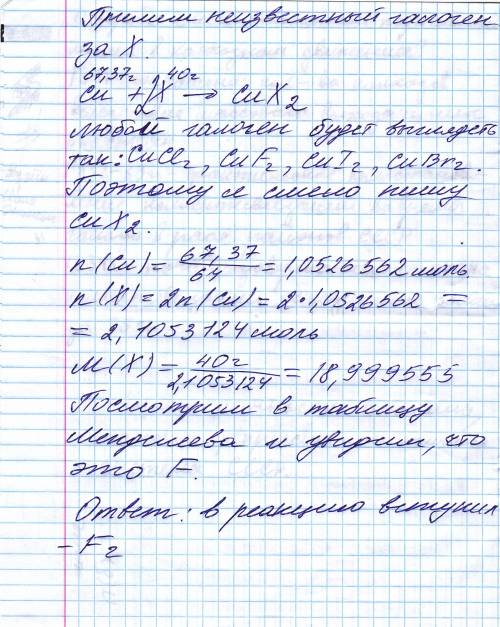 Примем неизвестный галоген
за X.
67,37г 40г
Cu + 2X → CuX₂
любой галоген будет выглядеть
так: CuCl₂, CuF₂, CuI₂, CuBr₂.
Поэтому я смело пишу
CuX₂.
n(Cu) = 67,37/64 = 1,0526562 моль.
n(X) = 2n(Cu) = 2·1,0526562 =
= 2,1053124 моль
M(X) = 40г/2,1053124 = 18,999555
Посмотрим в таблицу
Менделеева и увидим, что
это F.
Ответ: в реакцию вступил
– F₂